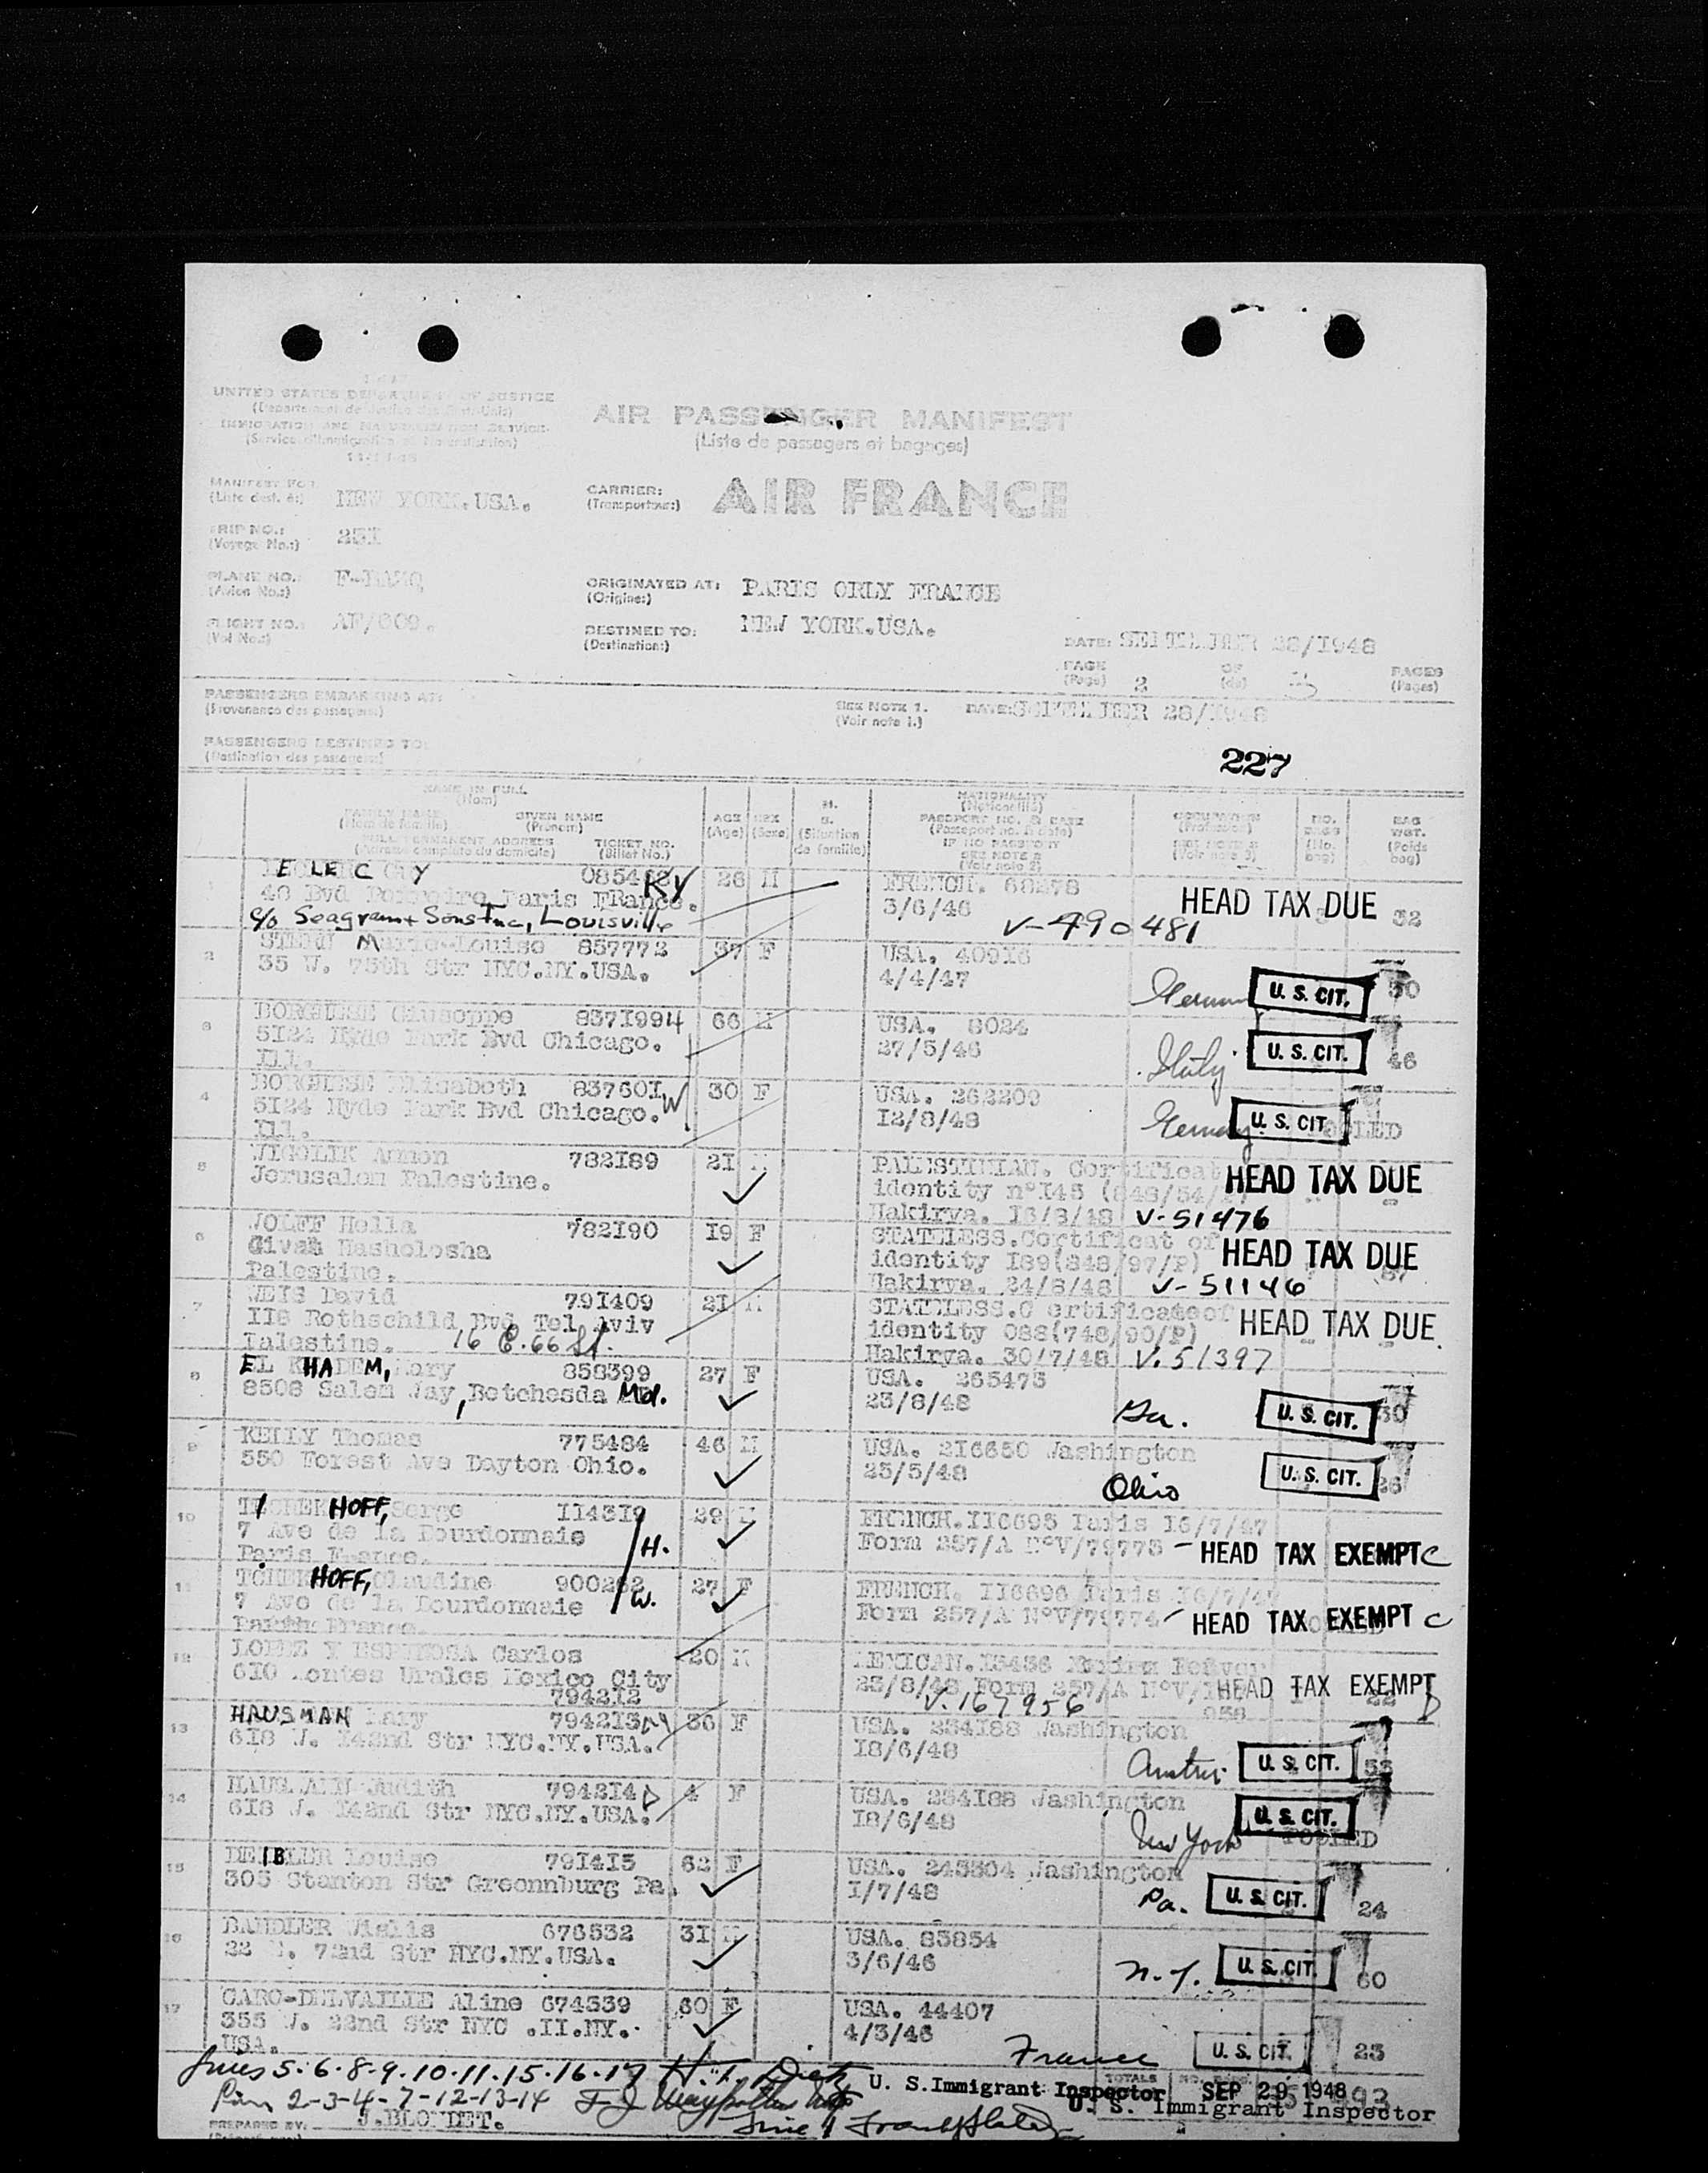 UNITED STATES DEPARTMENT OF JUSTICE
(Département de Justice des Etats-Unis)
IMMIGRATION AND NATURALIZATION SERVICE
(Service d'Immigration et Naturalisation)
AIR PASSENGER MANIFEST
(Liste de passagers et bagages)
MANIFEST FOR:
(Liste dest. à:) NEW YORK.USA.
CARRIER:
(Transporteur:) AIR FRANCE
TRIP NO.:
(Voyage No.:) 25I
PLANE NO.:
(Avion No.:)
ORIGINATED AT: PARIS ORLY FRANCE
(Origine:)
FLIGHT NO.: AF/009.
(Vol No.:)
DESTINED TO: NEW YORK.USA.
(Destination:)
DATE: SEPTEMBER 28/I948
PAGE 2 OF 3 PAGES
(Page) (de) (Pages)
PASSENGERS EMBARKING AT:
(Provenance des passagers:)
SEE NOTE 1. DATE: SEPTEMBER 28/I948
(Voir note 1.)
PASSENGERS DESTINED TO:
(Destination des passagers:)
227
NAME IN FULL
(Nom)
FAMILY NAME GIVEN NAME
(Nom de famille) (Prénom)
FULL PERMANENT ADDRESS TICKET NO.
(Adresse complète du domicile) (Billet No.)
AGE SEX
(Age) (Sexe)
(Situation de famille)
NATIONALITY
(Nationalité)
PASSPORT NO. & DATE
(Passeport no. & date)
IF NO PASSPORT
SEE NOTE 2
(Voir note 2)
OCCUPATION
(Profession)
SEE NOTE 3
(Voir note 3)
NO. BAGS
(No. bag)
BAG WGT.
(Poids bag)
26 M FRENCH. HEAD TAX DUE 32
Paris FRance. KY 3/6/46
c/o Seagram + Sons Inc, Louisville V-490481
2 Marie-Louise 857772 37 F USA. 409I8
35 W. 75th Str NYC.NY.USA. 4/4/47 U. S. CIT.
3 BORGHESE Giuseppe 837I994 66 M USA. 6024
5I24 Hyde Park Bvd Chicago. 27/5/46 Italy U. S. CIT. 46
Ill.
4 BORGHESE Elisabeth 83760I W 30 F USA. 262209
5I24 Hyde Park Bvd Chicago. I2/8/48 Germany U. S. CIT. POOLED
Ill.
5 Amnon 782I89 2I M PALESTINIAN. Certificat HEAD TAX DUE
Jerusalem Palestine. identity n°I45
Hakirya. V-51476
6 WOLFF Hella 782I90 I9 F STATELESS.Certificat of HEAD TAX DUE
Palestine. identity I89(848/97/P)
Hakirya. 24/8/48 V-51146
7 WEIS David 79I409 2I M STATELESS.C ertificateof HEAD TAX DUE
II8 Rothschild Bvd Tel Aviv identity 088(748/90/P)
Palestine. 16 E. 66 St. Hakirya. 30/7/48 V.51397
8 EL KHADEM, Mary 858399 27 F USA. 265473
8508 Salem Way, Betchesda Md. 23/8/48 U. S. CIT. 30
9 KELLY Thomas 775484 46 M USA. 2I6650 Washington
550 Forest Ave Dayton Ohio. 25/5/48 Ohio U. S. CIT. 26
10 HOFF, Serge II43I9 29 M FRENCH.II6695 Paris I6/7/47
7 Ave de la Bourdonnais H. Form 257/A N°V/79773 - HEAD TAX EXEMPT C
Paris France.
11 HOFF, Claudine 900262 27 F FRENCH. II6696 Paris I6/7/47
7 Ave de la Bourdonnais W. Form 257/A N°V/79774 HEAD TAX EXEMPT C
France.
12 Carlos 20 M MEXICAN.
6I0 Montes Urales Mexico City 23/8/48 Form 257/A N°V/ HEAD TAX EXEMPT
7942I2 V.167956
13 HAUSMAN Mary 7942I3 36 F USA. 234I88 Washington
6I8 W. I42nd Str NYC.NY.USA. I8/6/48 U. S. CIT.
14 Judith 7942I4 4 F USA. 234I88 Washington
6I8 W. I42nd Str NYC.NY.USA. I8/6/48 New York U. S. CIT. POOLED
15 DEIBLER Louise 79I4I5 62 F USA. 243304 Washington
305 Stanton Str Greennburg Pa. I/7/48 Pa. U. S. CIT. 24
16 BANDLER 676532 3I M USA. 85854
22 72nd Str NYC.NY.USA. 3/6/46 N.Y. U. S. CIT. 60
17 CARO-DELVAILLE Aline 674539 60 F USA. 44407
355 W. 22nd Str NYC .II.NY. 4/3/46 France U. S. CIT. 23
USA.
Lines 5-6-8-9-10-11-15-16-17
U. S. Immigrant Inspector
TOTALS
SEP 29 1948
2-3-4-7-12-13-14
U. S. Immigrant Inspector
PREPARED BY: J.BLONDET.
Line 1